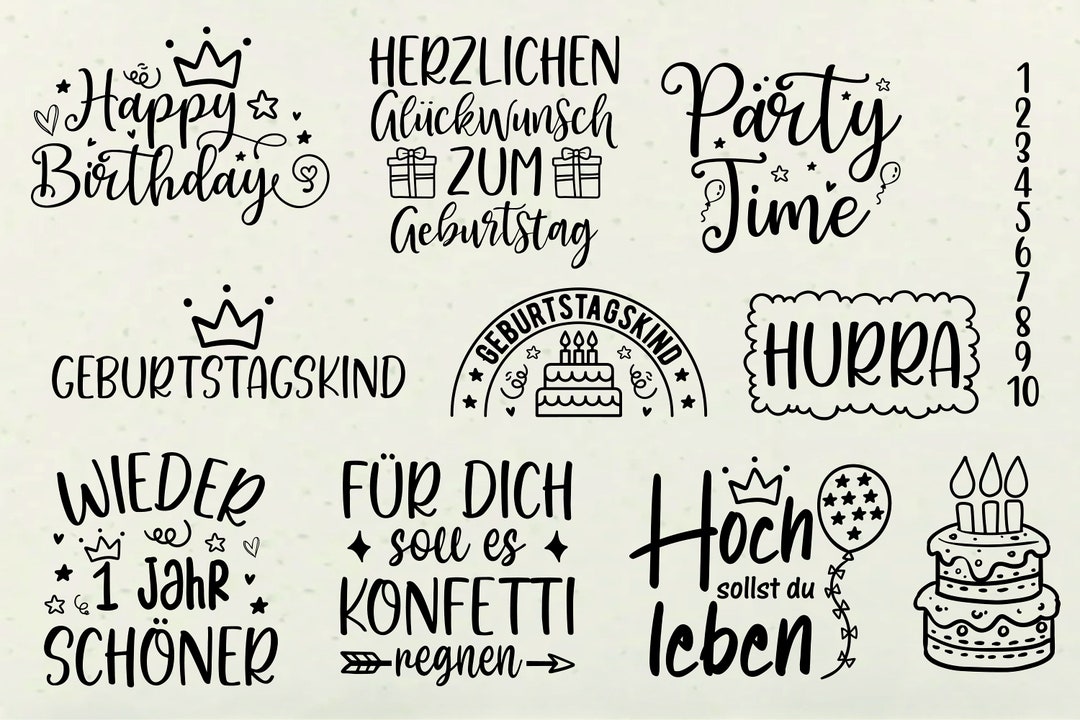 Happy
Birthday
HERZLICHEN
Glückwunsch
ZUM
Geburtstag
Party
Time
1
2
3
4
5
6
7
8
9
10
GEBURTSTAGSKIND
GEBURTSTAGSKIND
HURRA
WIEDER
1 JAHR
SCHÖNER
FÜR DICH
soll es
KONFETTI
regnen
Hoch
sollst du
leben